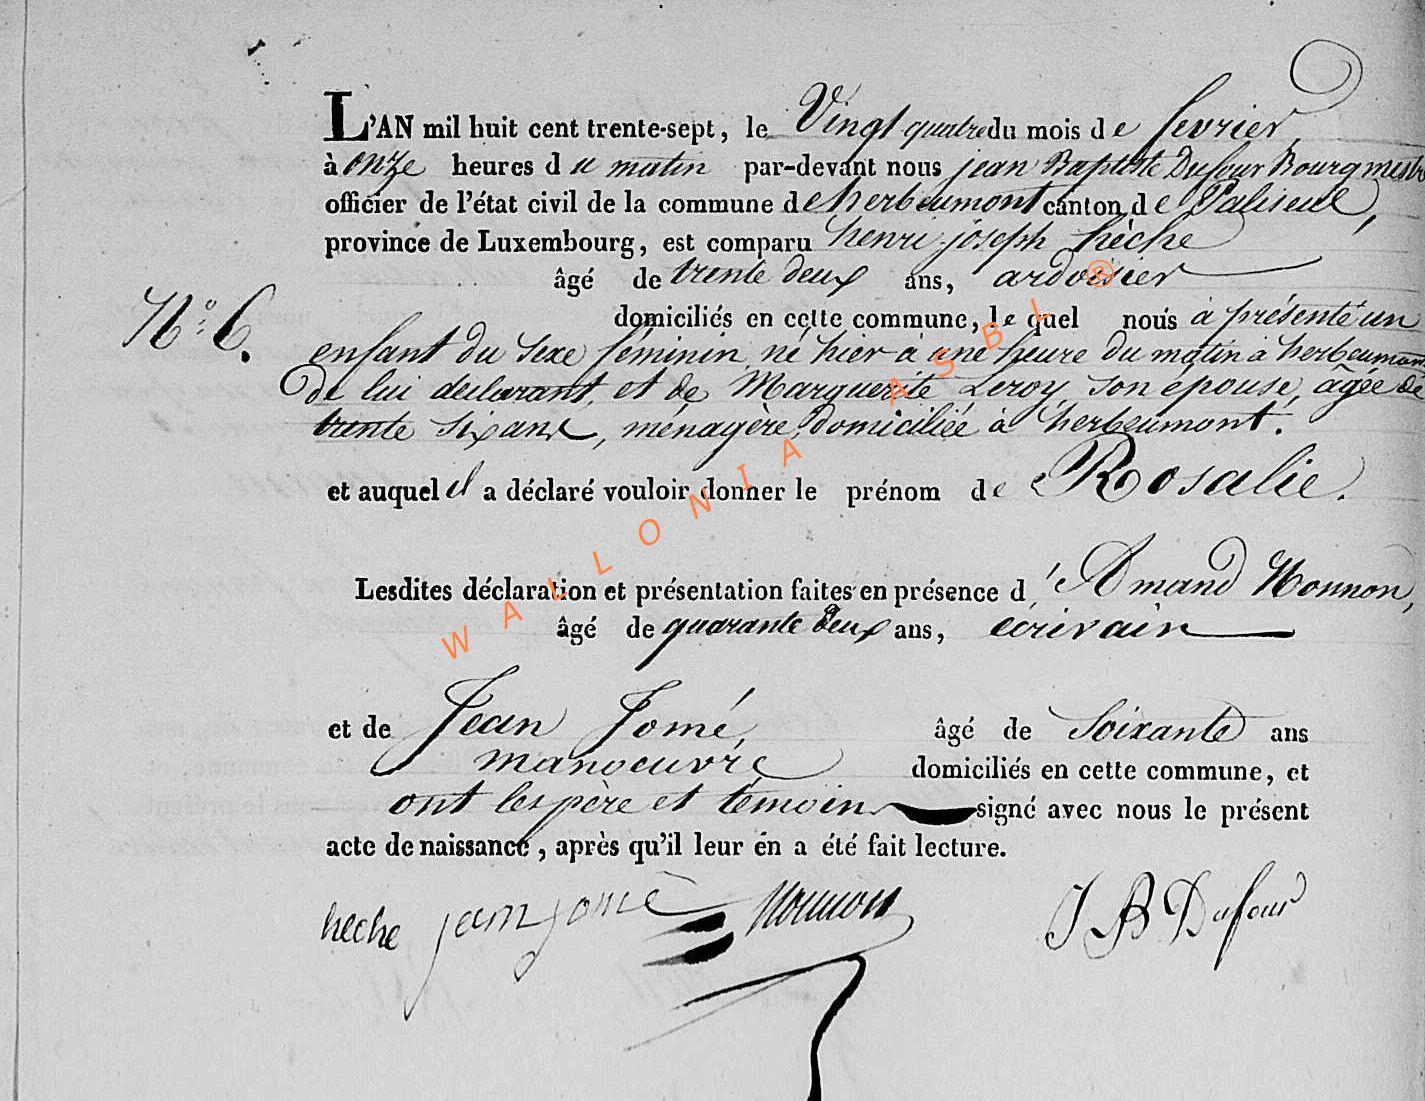 L'AN mil huit cent trente-sept, le Vingt quatre du mois de fevrier
à onze heures du matin par-devant nous jean Baptiste Dufour Bourgmestre
officier de l'état civil de la commune de herbeumont canton de Paliseul,
province de Luxembourg, est comparu henri joseph hèche
âgé de trente deux ans, ardoisier
N° 6.
domiciliés en cette commune, le quel nous à présenté un
enfant du sexe féminin, né hier à une heure du matin à herbeumont
de lui declarant, et de Marguerite Leroy, son épouse, âgée de
trente six ans, ménagère, domiciliée à herbeumont.
et auquel il a déclaré vouloir donner le prénom de Rosalie.
Lesdites déclaration et présentation faites en présence d'Amand Nonnon,
âgé de quarante deux ans, écrivain
et de Jean Jomé, âgé de Soixante ans
manoeuvre domiciliés en cette commune, et
ont les père et témoins signé avec nous le présent
acte de naissance, après qu'il leur en a été fait lecture.
heche jean jomé Nonnon J B Dufour
WALLONIA ASBL ®